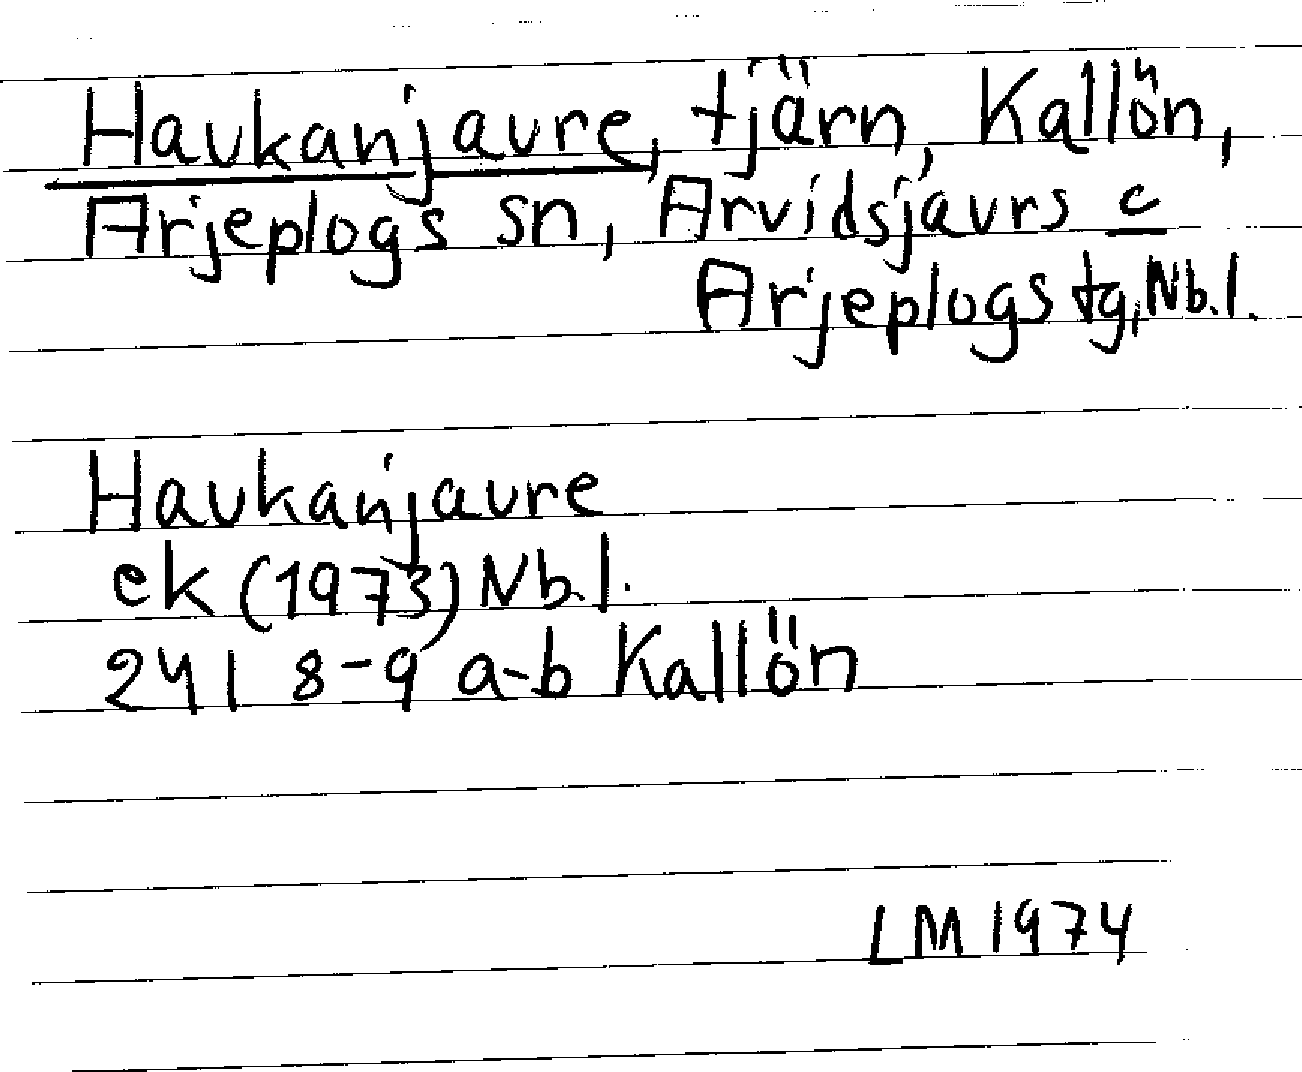 Haukanjaure, tjärn, Kallön,
Arjeplogs sn, Arvidsjaurs c
Arjeplogs tg, Nb.l.
Haukanjaure
ek (1973) Nb.l.
24 I 8-9 a-b Kallön
LM 1974